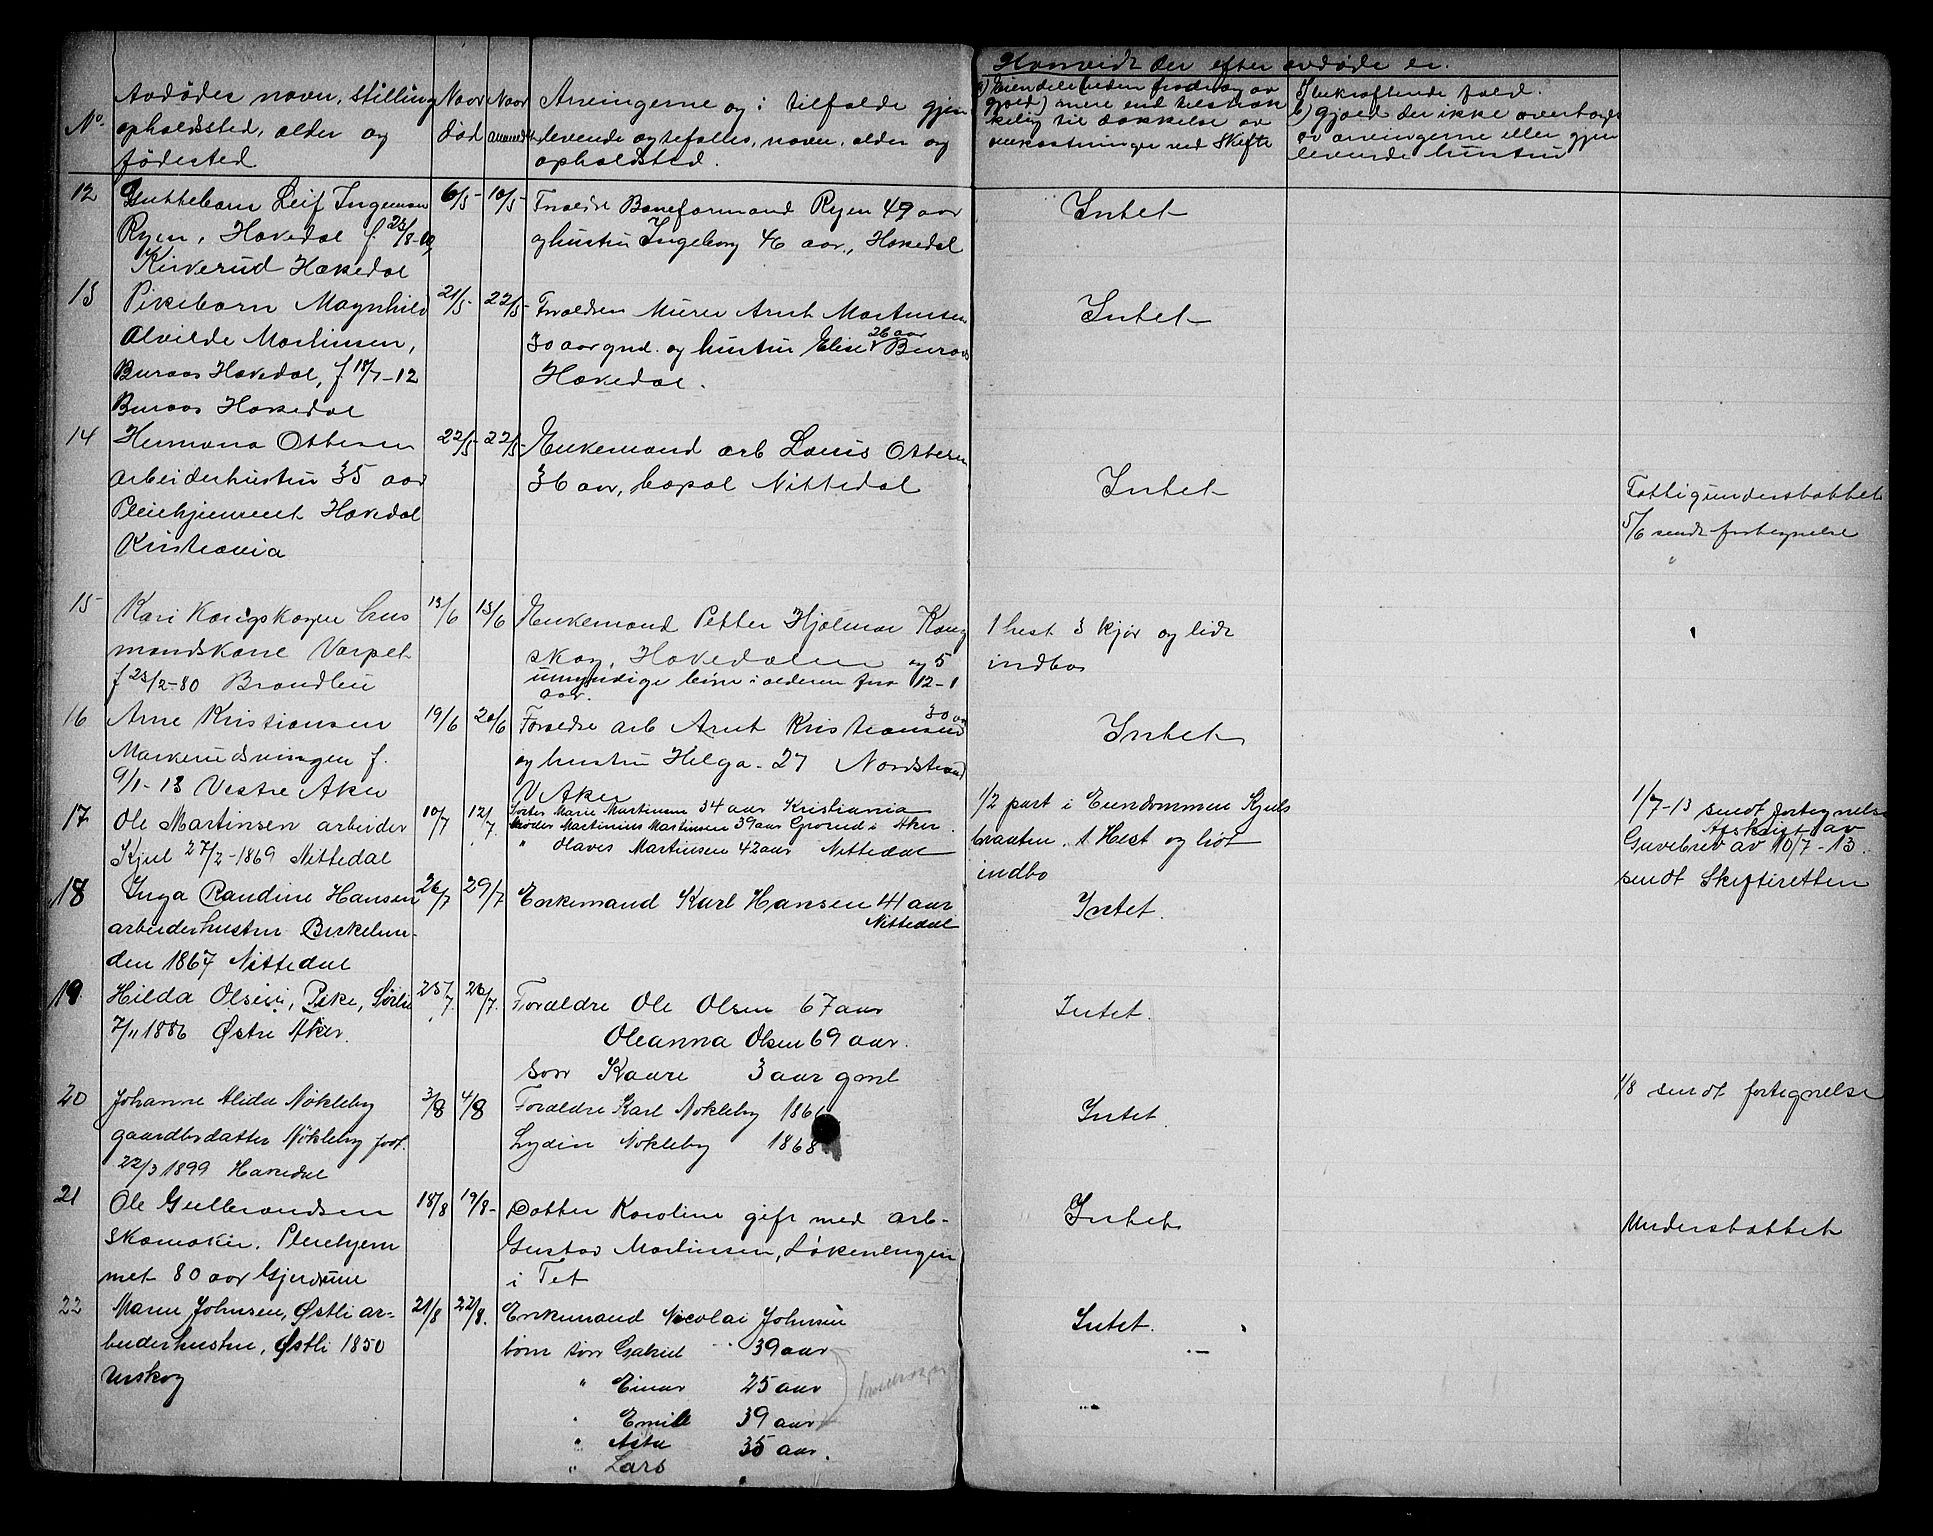 No.
Avdødes navn, stilling
opholdssted, alder og
fødested
Naar
død
Naar
anmeldt
Arvingerne og i tilfælde gjen
levende egtefælles, navn, alder og
opholdsted.
Hvorvidt der efter avdøde er.
mere end tilstræk
kelig til dækkelse av
omkostninger ved Skifte
a) bekræftende fald.
b) gjæld der ikke overtages
av arvingerne eller gjen
levende hustru
12
Guttebarn Leif Ingeman
Ryen, Hakedal f. 23/8-00,
Kirkerud Hakedal
6/5
10/5
Foreldre Baneformand Ryen 49 aar
og hustru Ingeborg 46 aar, Hakedal
Intet
13
Pikebarn Magnhild
Alvilde Martinsen,
Buraas Hakedal, f. 18/7-12
Buraas Hakedal
21/5
22/5
Foreldre Murer Arnt Martinsen
30 aar gml. og hustru Elise 26 aar Buraas
Hakedal.
Intet
14
Hermana Ottesen
arbeiderhustru 35 aar
Pleiehjemmet Hakedal
Kristiania
22/5
22/5
Enkemand arb Louis Ottesen
36 aar, Nittedal
Intet
Fattigunderstøttet
5/6 sendt fortegnelse
15
Kari Kongskogen hus
mandskone Varpet
f 23/2-80 Brandbu
13/6
13/6
Enkemand Petter Hjalmar Kong
skog, Hakedalen og 5
umyndige børn i alderen fra 12-1
aar.
1 hest 3 kjør og lidt
indbo
16
Arne Kristiansen
Markerudsvingen f.
9/1-13 Vestre Aker
19/6
20/6
Foreldre arb Arnt Kristiansen 30 aar
og hustru Helga 27 Nordstrand
V Aker
Intet
17
Ole Martinsen arbeider
Kjul 27/2-1869 Nittedal
10/7
12/7
Søster Marie Martinsen 34 aar Kristiania
Broder Martinius Martinsen 39 aar Grorud i Aker
" Olaves Martinsen 42 aar Nittedal
1/2 part i Eiendommen Kjuls
braaten. 1 Hest og lidt
indbo
1/7-13 sendt fortegnelse
Afskrift av
Gavebrev av 10/7-13
sendt Skifteretten
18
Inga Randine Hansen
arbeiderhustru Birkelun-
den 1867 Nittedal
26/7
29/7
Enkemand Karl Hansen 41 aar
Nittedal
Intet.
19
Hilda Olsen, Pike, Sørli
7/11 1886 Østre Aker.
25/7
26/7
Forældre Ole Olsen 67 aar
Oleanna Olsen 69 aar.
Søn Kaare 3 aar gml
Intet.
20
Johanne Alida Nøkleby
gaardbrdatter Nøkleby født
22/3 1899 Hakedal
3/8
4/8
Forældre Karl Nøkleby
Lydia Nøkleby 1868
Intet.
1/8 sendt fortegnelse
21
Ole Gulbrandsen
Skomaker. Pleiehjem
met 80 aar Gjerdrum
18/8
19/8
Datter Karoline gift med arb-
Gustav Martinsen, Løkenengen
i Tet
Intet
Understøttet
22
Maren Johnsen, Østli ar-
beiderhustru, Østli 1850
Urskog
21/8
22/8.
Enkemand Nicolai Johnsen
børn søn Gabriel 39 aar
" Einar 25 aar
" Emil 39 aar
" Asta 35 aar.
" Lars
Intet.